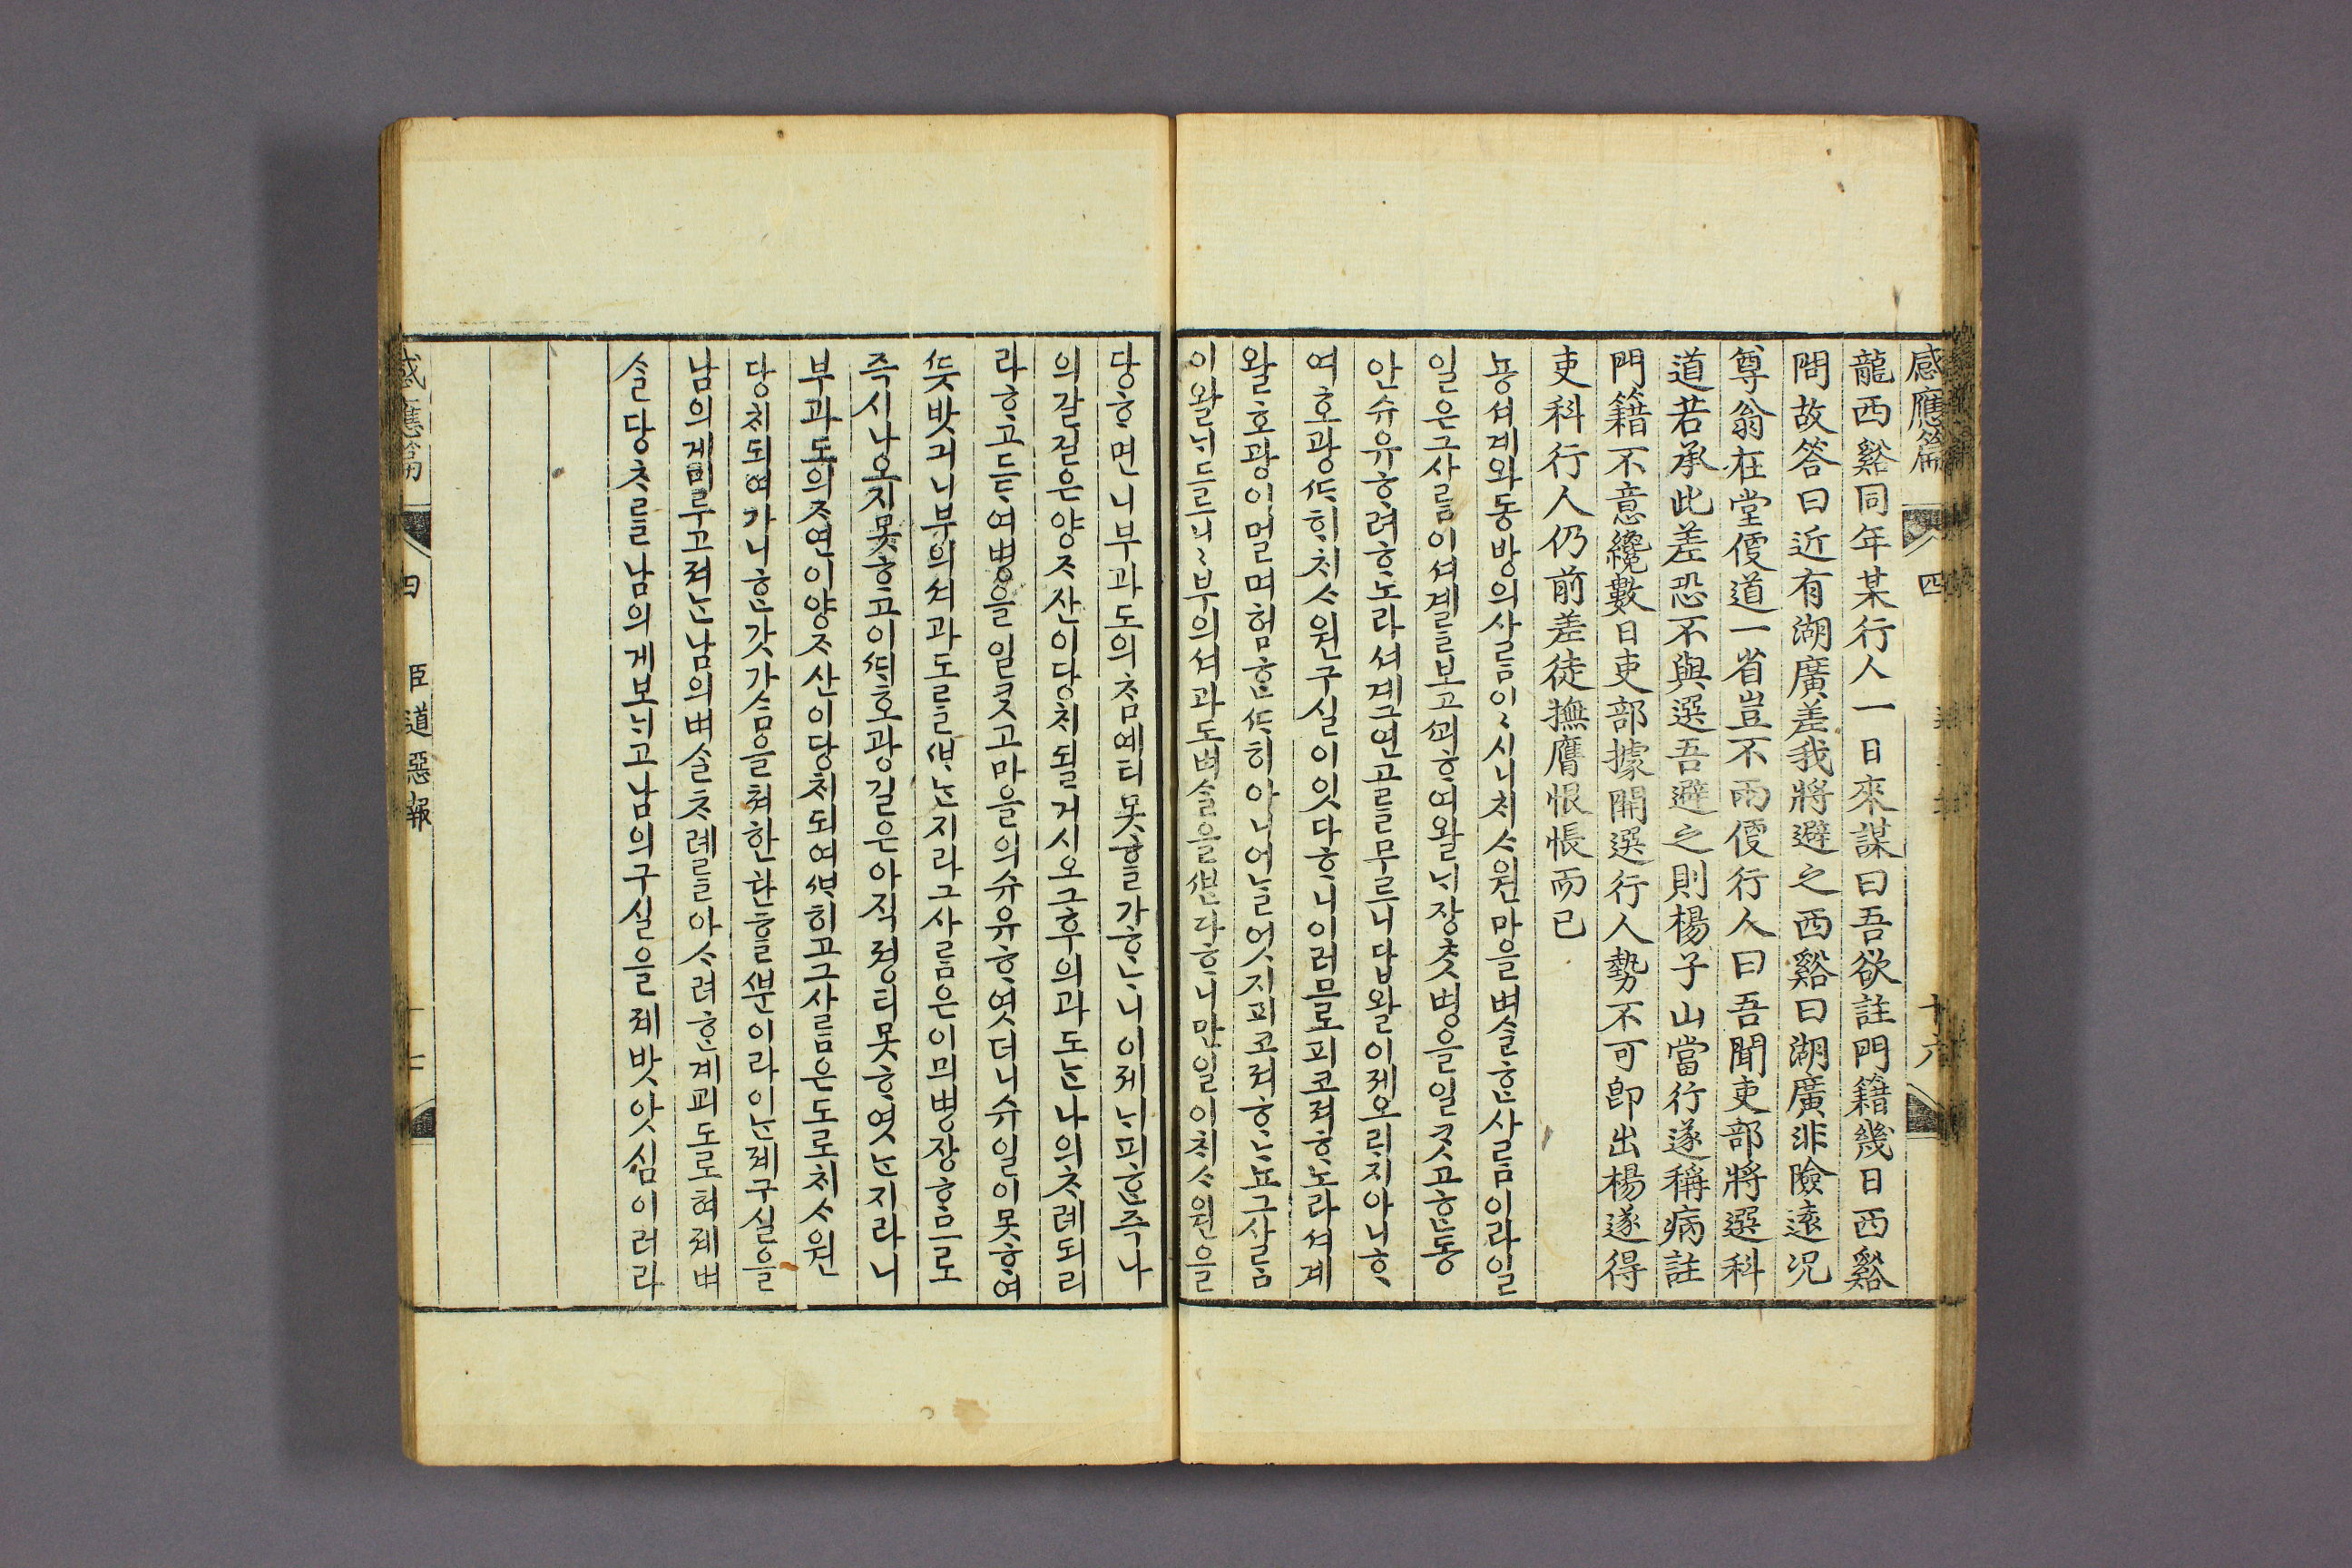 感應篇 四 十六
龍西谿同年某行人一日來謀曰吾欲註門籍幾日西谿
問故答曰近有湖廣差我將避之西谿曰湖廣非險遠况
尊翁在堂便道一省豈不兩便行人曰吾聞吏部將選科
道若承此差恐不與選吾避之則楊子山當行遂稱病註
門籍不意纔數日吏部據開選行人勢不可卽出楊遂得
吏科行人仍前差徒撫膺恨悵而已
뇽셔계와동방의사ᄅᆞᆷ이〻시니ᄎᆡᄉᆞ원마을벼ᄉᆞᆯᄒᆞᆫ사ᄅᆞᆷ이라일
일은그사ᄅᆞᆷ이셔계ᄅᆞᆯ보고ᄭᅬᄒᆞ여왈ᄂᆡ쟝ᄎᆞᆺ병을일ᄏᆞᆺ고ᄒᆞᆫ동
안슈유ᄒᆞ려ᄒᆞ노라셔계그연고ᄅᆞᆯ무르니답왈이제오ᄅᆡ지아니ᄒᆞ
여호광ᄯᅡᄒᆡᄎᆡᄉᆞ원구실이잇다ᄒᆞ니이러므로피코져ᄒᆞ노라셔계
왈호광이멀며험ᄒᆞᆫᄯᅡ히아니어ᄂᆞᆯ엇지피코져ᄒᆞᄂᆞ뇨그사ᄅᆞᆷ
이왈ᄂᆡ드르니〻부의셔과도벼ᄉᆞᆯ을ᄲᅢᆫ다ᄒᆞ니만일이ᄎᆡᄉᆞ원을
당ᄒᆞ면니부과도의참예티못ᄒᆞᆯ가ᄒᆞᄂᆞ니이제ᄂᆡ피ᄒᆞᆫ즉나
의갈길은양ᄌᆞ산이당ᄎᆡ될거시오그후의과도ᄂᆞᆫ나의ᄎᆞ례되리
라ᄒᆞ고드ᄃᆡ여병을일ᄏᆞᆺ고마을의슈유ᄒᆞ엿더니슈일이못ᄒᆞ여
ᄯᅳᆺ밧긔니부의셔과도ᄅᆞᆯᄲᅢᄂᆞᆫ지라그사ᄅᆞᆷ은이믜병쟝ᄒᆞ므로
즉시나오지못ᄒᆞ고이ᄯᅢ호광길은아직졍티못ᄒᆞ엿ᄂᆞᆫ지라니
부과도의ᄌᆞ연이양ᄌᆞ산이당ᄎᆡ되여ᄲᅢ히고그사ᄅᆞᆷ은도로ᄎᆡᄉᆞ원
당ᄎᆡ되여가니ᄒᆞᆫ갓가ᄉᆞᆷ을쳐한탄ᄒᆞᆯᄲᅮᆫ이라이ᄂᆞᆫ제구실을
남의게미루고져ᄂᆞᆫ남의벼ᄉᆞᆯᄎᆞ례ᄅᆞᆯ아ᄉᆞ려ᄒᆞᆫ계ᄀᆈ도로혀제벼
ᄉᆞᆯ당ᄎᆞᄅᆞᆯ남의게보ᄂᆡ고남의구실을제밧앗심이러라
感應篇 四 臣道惡報